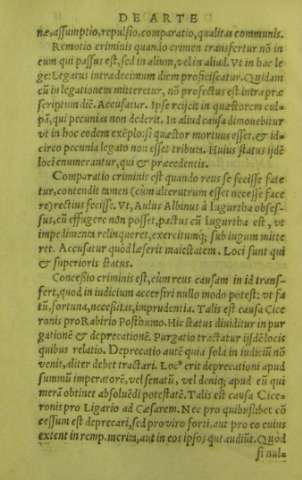 DE ARTE
næ, assumptio, repulsio, comparatio, qualitas communis.
Remotio criminis quando crimen transfertur nõ in
eum qui passus est, sed in alium, vel in aliud. Vt in hac le
ge: Legatus intra decimum diem proficiscatur. Quidam
cũ in legationem mitteretur, nõ profectus est intra præ
scriptum diẽ. Accusatur. Ipse reijcit in quæstorem cul-
pã, qui pecunias non dederit. In aliud causa dimouebitur
vt in hoc eodem exẽplo: si quæstor mortuus esset, & id-
circo pecunia legato non esset tributa. Huius status ijsdẽ
loci enumerantur, qui & præcedentis.
Comparatio criminis est quando reus se fecisse fate
tur, contendit tamen (cùm alterutrum esset necesse face
re) rectius fecisse. Vt, Aulus Albinus à Iugurtha obses-
sus, cũ effugere nõn posset, pactus cũ Iugurtha est, vt
impedimenta relinqueret, exercitumq; sub iugum mitte
ret. Accusatur quòd læserit maiestatem. Loci sunt qui
& superioris status.
Concessio criminis est, cùm reus causam in id trans-
fert, quod in iudicium accersiri nullo modo potest: vt fa
tũ, fortuna, necessitas, imprudentia. Talis est causa Cice
ronis pro Rabirio Posthumo. Hic status diuiditur in pur
gationẽ & deprecationẽ. Purgatio tractatur ijsdẽ locis
quibus relatio. Deprecatio autẽ quia sola in iudiciũ nõ
venit, aliter debet tractari. Locus erit deprecationi apud
summũ imperatorẽ, vel senatũ, vel deniq; apud eũ qui
merã obtinet absoluẽdi potestatẽ. Talis est causa Cice
ronis pro Ligario ad Cæsarem. Nec pro quibuslibet cõ
cessum est deprecari, sed pro viro forti, aut pro eo cuius
extent in remp. merita, aut in eos ipsos qui audiũt. Quòd
si nul-